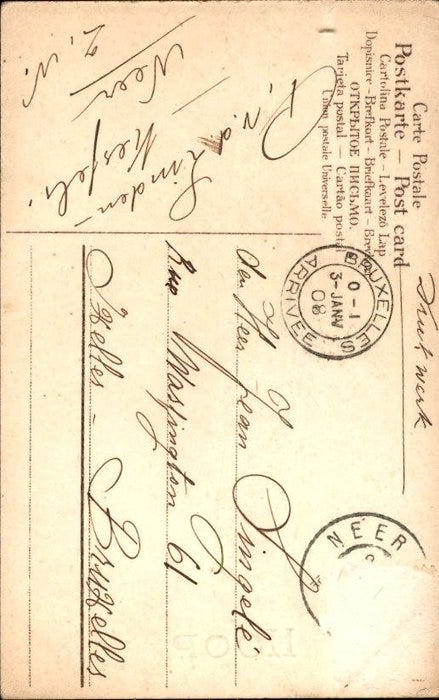 Carte Postale
Postkarte — Post card
Cartolina Postale – Levelező Lap
Dopisnice – Brefkort – Briefkaart – Brev
ОТКРЫТОЕ ПИСЬМО.
Tarjeta postal — Cartão posta
Union postale Universelle
Drukwerk
BRUXELLES
0–1
3–JANV
08
ARRIVÉE
NEER
Linden–
Neer
den Heer Jean Singelé
Rue Wassington 61
Ixelles – Bruxelles